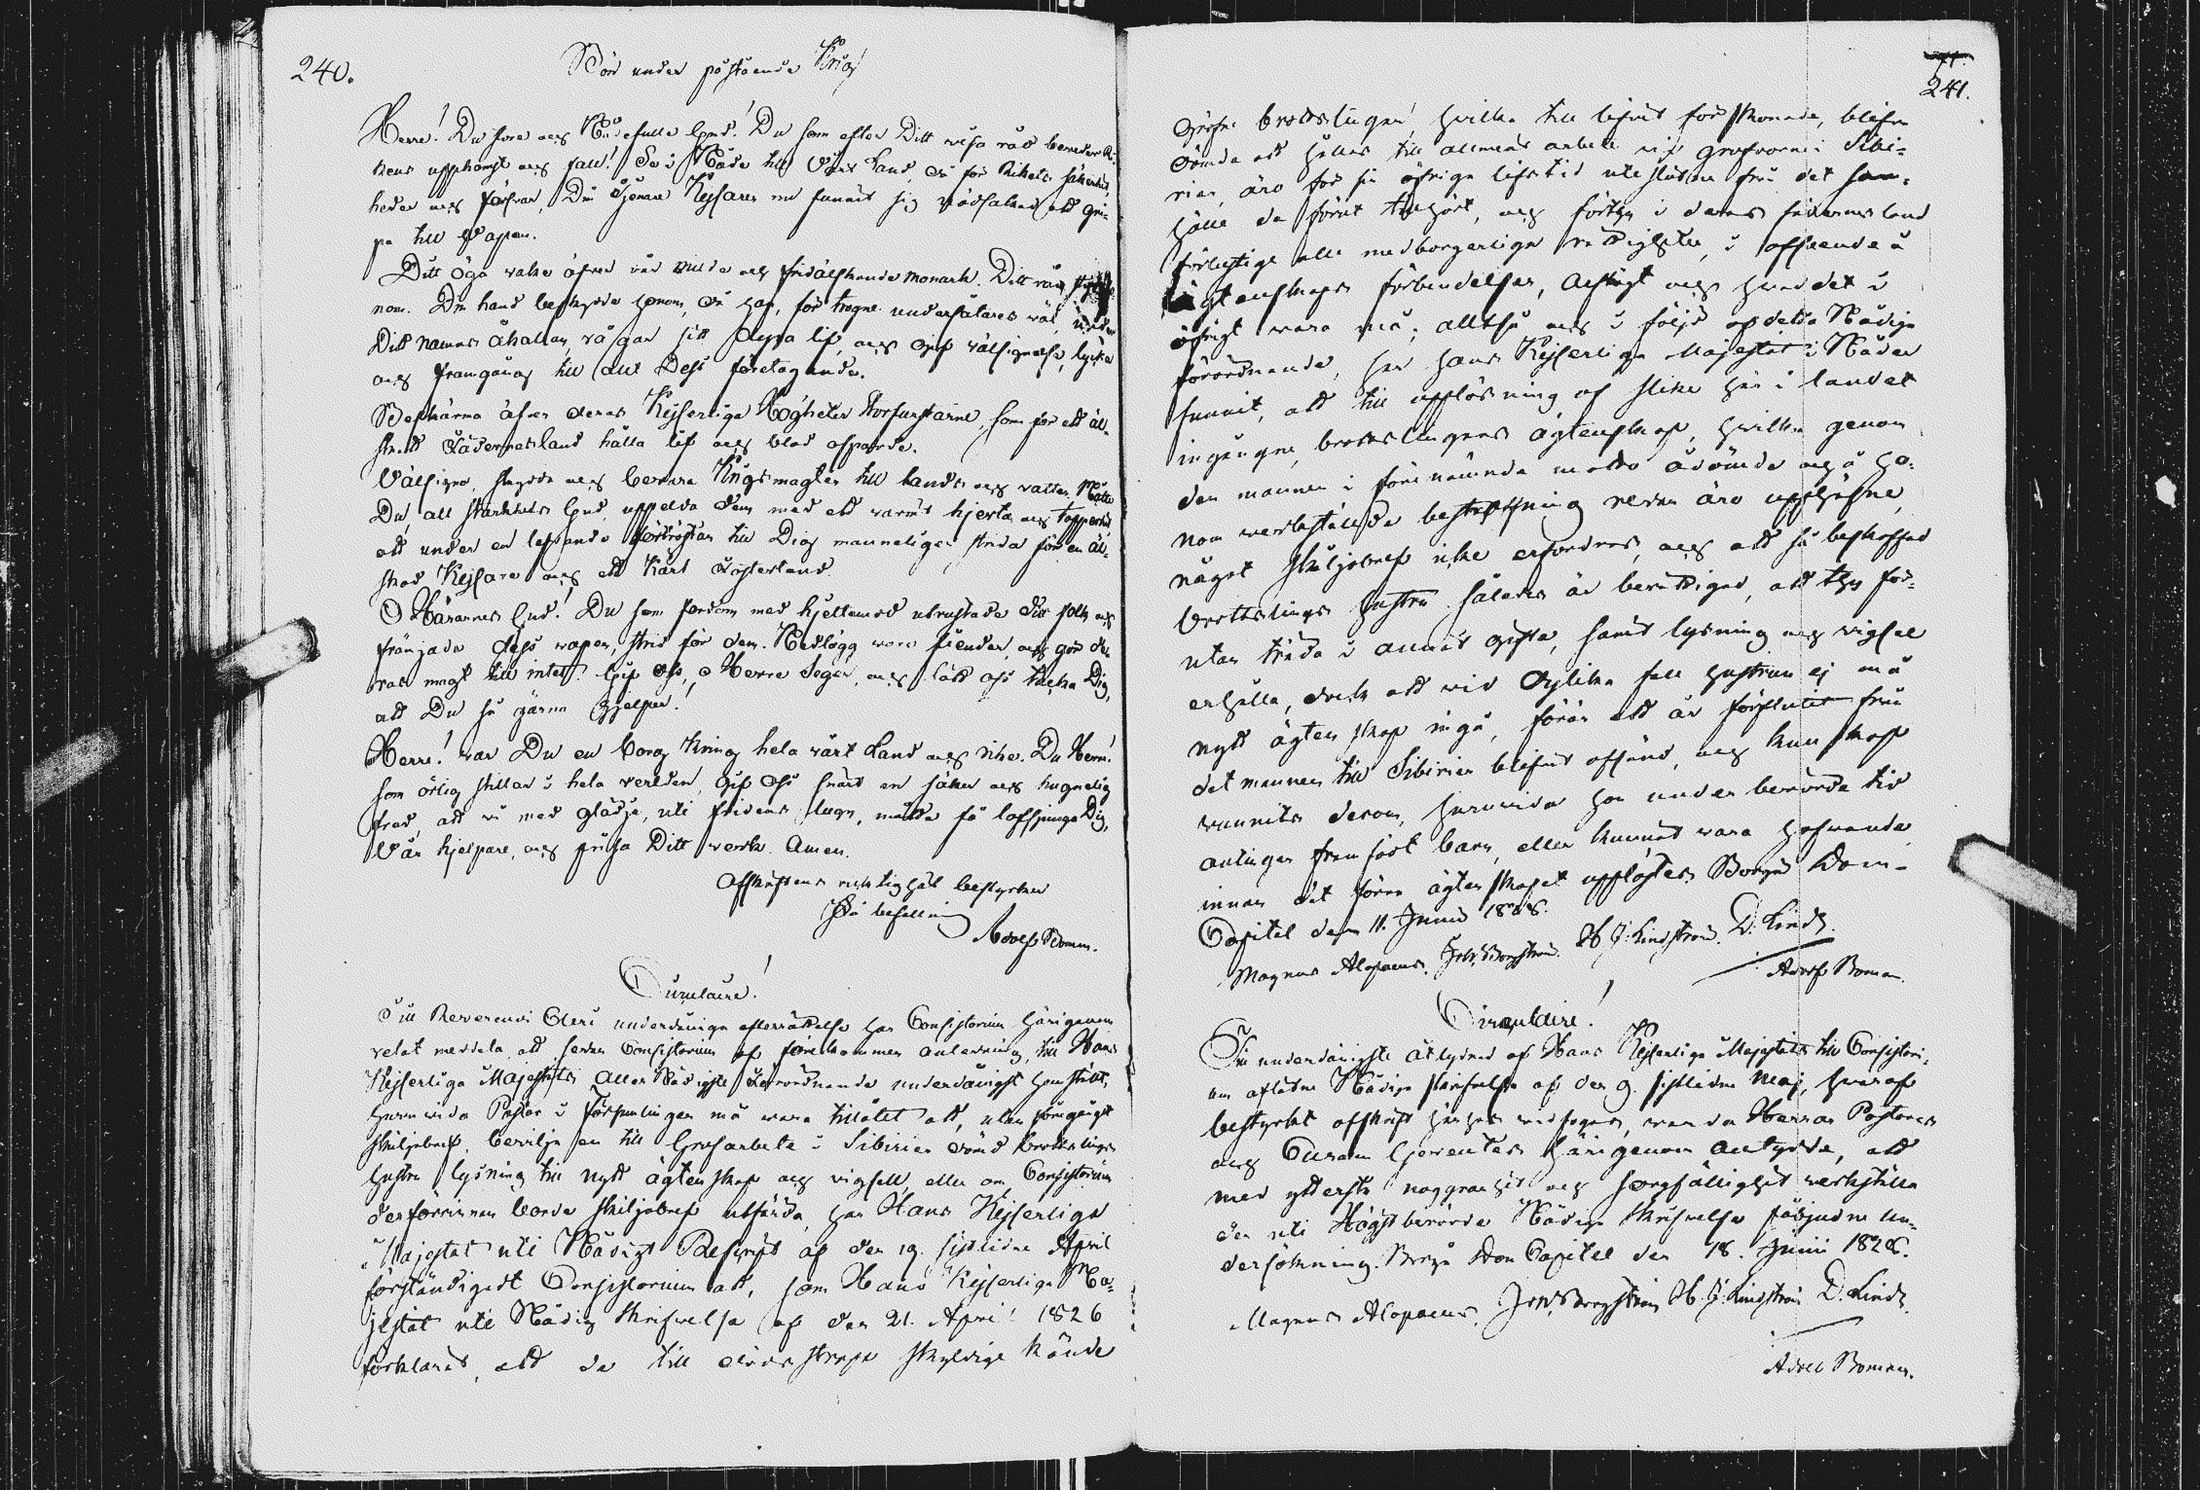 240.
Bön under påstående Krig
Herre! Du store och Nådefulle Gud! Du som efter Ditt wisa råd bereder Ri-
kens upphöjgt och fall! Se i Nåde till Vårt Land, då för Rikets säkerhet,
heder och försvar, Din Tjenare Kejsaren nu funnit sig nödsakad att gri-
pa till Vapen.
Ditt öga wake öfver vår milde och fridälskande Monark. Ditt råd styrke ho-
nom. Din hand beskydde honom, då han, för trogne undersåtares väl, under
Ditt namns åkallan, vågar sitt dyra lif, och gif välsignelse, lycka
och framgång till alla Dess företagande.
Beskärma äfven deras Kejserliga Högheter Storfurstarne, som för ett äl-
skadt Fädernesland hålla lif och blod ospardt.
Välsigna, skydda och bevara Krigsmagten till lands och vatten. Mätta
Du, all starkhets Gud, uppelda dem med ett varmt hjerta och tapperhet
att under en lefvande förtröstan till Dig manneligen strida för en äl-
skad Kejsare och ett kärt Fosterland.
O Härarnes Gud! Du som fordom med hjeltemod utrustade ditt folk och
frängade dess wapen, strid för dem. Nedlägg wåra fiender, och gör de-
ras magt till intet. Gif oss, o Herre Seger, och låt oss tacka Dig,
att Du så gärna hjelper!
Herre! war Du en borg kring hela wårt Land och rike. Du Herre!
som örlig stillar i hela verlden, gif oss snart en säker och hugnelig
fred, att vi med glädje, uti fridens lugn, måtte få lofsjunga Dig,
Vår hjelpare, och prisa Ditt verk. Amen.
Afskriftens riktighet bestyrker
På befallning
Adolf Boman.
Circulaire!
Till Reverendi Cleri underdåniga efterrättelse har Consistorium härigenom
velat meddela att sedan Consistorium af förekommen anledning, till Hans
Kejserliga Majestäts Aller Nådigste förordnande underdånigst hemställt,
huruvida Pastor i Församlingen må vara tillåtet att, utan föregånget
skiljobref, bevilja en till Grufarbete i Sibirien dömd brottslings
hustru lysning till nytt ägtenskap och vigsel, eller om Consistorium
derförinnan borde skiljobref utfärda, har Hans Kejserliga
Majestät uti Nådigt Rescript af den 19. sistlidne April
förständigadt Consistorium att, som Hans Kejserliga Ma-
jestät uti Nådig Skrifvelse af den 21. April 1826
förklarat, att de till dödsstraff skyldige kände
241.
grofve brottslingar, hvilka till lifvet förskonade, blifva
dömda att hållas till allmänt arbete vid grufvorna i Sibi-
rien, äro för sin öfriga lifstid uteslutne från det sam-
hälle de förut tillhört, och förthy i deras fädernesland
förlustige alla medborgerliga rättigheter, i afseende å
ägtenskaps förbindelser, arfsrätt och hvad det i
öfrigt vara må; alltså och i följd af detta Nådiga
förordnande, har Hans Kejserliga Majestät i Nåder
funnit, att till upplösning af slike här i landet
ingångne, brottslingens ägtenskap, hvilka genom
den mannen i förenämnde motto ådömde och å ho-
nom verkställde bestraffning redan äro upphäfne,
något skiljobref icke erfordras, och att så beskaffad
brottslings hustru således är berättigad, att thy för-
utan träda i annat gifte, samt lysning och vigsel
erhålla, dock att vid dylika fall hustrun ej må
nytt ägtenskap ingå, förän ett år förflutit från
det mannen till Sibirien blifvit afsänd, och kunskap
vunnits derom, huruvida hon under berörde tid
antingen framfödt barn, eller kunnat vara hafvande
innan det förra ägtenskapet upplöstes. Borgå Dom-
Capitel den 11. Junii 1828.
Magnus Alopaeus. Joh. Borgström. H. J. Lindström. D. Lindh.
Adolf Boman.
Circulaire!
Till underdånigste åtlydnad af Hans Kejserliga Majestäts till Consistori-
um aflåtne Nådiga skrifvelse af den 9. sistlidne Maj, hvaraf
bestyrkt afskrift härhos vidfogas, warda Herrar Pastorer
och Curam Gerentes härigenom antydde, att
med ytterste noggranhet och sorgfällighet verkställa
den uti Högstberörde Nådiga Skrifvelse påbjudne un-
dersökning. Borgå Dom Capitel den 18. Junii 1828.
Magnus Alopaeus. Joh. Borgström H. J. Lindström D. Lindh.
Adolf Boman.